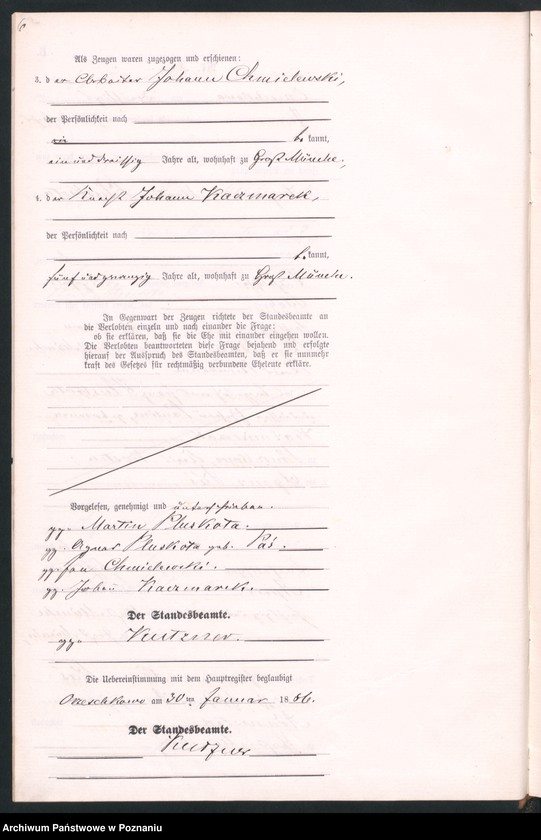 6
Als Zeugen waren zugezogen und erschienen:
3. d er Arbeiter Johann Chmielewski,
der Persönlichkeit nach
be kannt,
ein und dreissig Jahre alt, wohnhaft zu Groß Münche,
4. d er Knecht Johann Kaczmarek,
der Persönlichkeit nach
be kannt,
fünf und zwanzig Jahre alt, wohnhaft zu Groß Münche.
In Gegenwart der Zeugen richtete der Standesbeamte an
die Verlobten einzeln und nach einander die Frage:
ob sie erklären, daß sie die Ehe mit einander eingehen wollen.
Die Verlobten beantworteten diese Frage bejahend und erfolgte
hierauf der Ausspruch des Standesbeamten, daß er sie nunmehr
kraft des Gesetzes für rechtmäßig verbundene Eheleute erkläre.
Vorgelesen, genehmigt und unterschrieben.
gez. Martin Pluskota.
gez. Agnes Pluskota geb. Paś.
gez. Jan Chmielewski.
gez. Johan Kaczmarek.
Der Standesbeamte.
gez. Kutzner.
Die Uebereinstimmung mit dem Hauptregister beglaubigt
Orzeschkowo am 30 ten Januar 1886.
Der Standesbeamte.
Kutzner
Archiwum Państwowe w Poznaniu